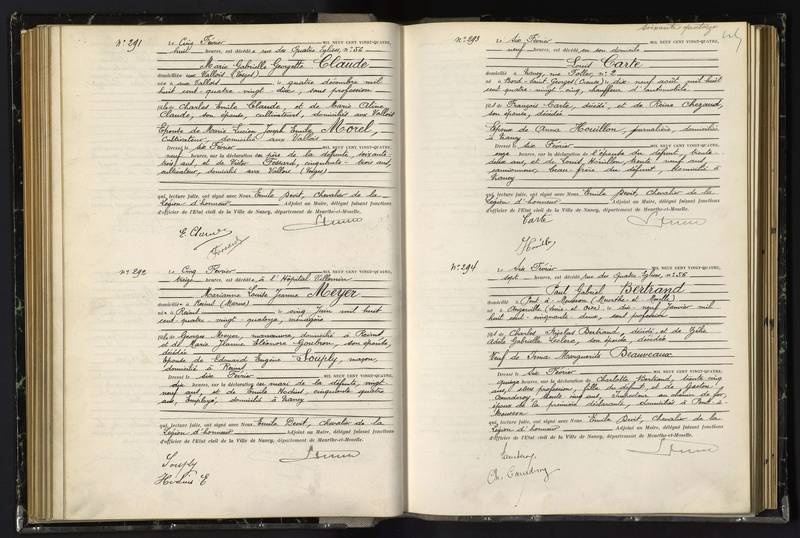 N° 291
Le Cinq Février MIL NEUF CENT VINGT-QUATRE,
huit heures, est décédée rue des Quatre Eglises, n° 56
Marie Gabrielle Georgette Claude
domiciliée aux Vallois (Vosges)
née aux Vallois le quatre décembre mil
huit cent quatre vingt dix, sans profession
fille de Charles Emile Claude, et de Marie Aline
Claude, son épouse, cultivateurs, domiciliés aux Vallois
Epouse de Marie Lucien Joseph Emile Morel,
cultivateur, domicilié aux Vallois
Dressé le six Février MIL NEUF CENT VINGT-QUATRE,
neuf heures, sur la déclaration du père de la défunte, soixante
trois ans, et de cinquante trois ans,
cultivateur, domicilié aux Vallois (Vosges)
qui, lecture faite, ont signé avec Nous Emile Devit, Chevalier de la
Légion d'honneur Adjoint au Maire, délégué faisant fonctions
d'officier de l'Etat civil de la Ville de Nancy, département de Meurthe-et-Moselle.
E Claude
N° 292
Le Cinq Février MIL NEUF CENT VINGT-QUATRE,
treize heures, est décédée à l'Hôpital Villemin
Marianne Louise Jeanne Meyer
domiciliée à
née à le cinq Juin mil huit
cent quatre vingt quatorze, ménagère
fille de Georges Meyer, manœuvre, domicilié à
et de Marie Jeanne Eléonore son épouse,
décédée
Epouse de Edouard Eugène Souply, maçon,
domicilié à
Dressé le six Février MIL NEUF CENT VINGT-QUATRE,
dix heures, sur la déclaration du mari de la défunte, vingt
neuf ans, et de Emile cinquante quatre
ans, employé, domicilié à Nancy
qui, lecture faite, ont signé avec Nous Emile Devit, Chevalier de la
Légion d'honneur Adjoint au Maire, délégué faisant fonctions
d'officier de l'Etat civil de la Ville de Nancy, département de Meurthe-et-Moselle.
Souply
N° 293
Le Six Février MIL NEUF CENT VINGT-QUATRE,
neuf heures, est décédé en son domicile
Louis Carte
domicilié à Nancy, rue n° 2
né à Bord-Saint Georges (Creuse) le dix neuf août mil huit
cent quatre vingt cinq, chauffeur d'automobile
fils de François Carte, décédé, et de Reine
son épouse, décédée
Epoux de Anna Houillon, journalière, domiciliée
à Nancy
Dressé le six Février MIL NEUF CENT VINGT-QUATRE,
onze heures, sur la déclaration de l'épouse du défunt, trente
deux ans, et de Louis Houillon, trente neuf ans,
camionneur, beau-frère du défunt, domiciliés à
Nancy
qui, lecture faite, ont signé avec Nous Emile Devit, Chevalier de la
Légion d'honneur Adjoint au Maire, délégué faisant fonctions
d'officier de l'Etat civil de la Ville de Nancy, département de Meurthe-et-Moselle.
Carte
N° 294
Le Six Février MIL NEUF CENT VINGT-QUATRE,
sept heures, est décédé rue des Quatre Eglises, n° 56
Paul Gabriel Bertrand
domicilié à Pont-à-Mousson (Meurthe et Moselle)
né à (Seine et Oise) le dix Janvier mil
huit cent cinquante deux, sans profession
fils de Charles Bertrand, décédé, et de Zélie
Adèle Gabrielle Leclere, son épouse, décédée
Veuf de Irma Marguerite Beauveaux
Dressé le six Février MIL NEUF CENT VINGT-QUATRE,
quinze heures, sur la déclaration de Charlotte Bertrand, trente cinq
ans, sans profession, fille du défunt, et de Gaston
trente cinq ans, Inspecteur au chemin de fer,
époux de la première déclarante, domiciliés à Pont-à-
Mousson
qui, lecture faite, ont signé avec Nous Emile Devit, Chevalier de la
Légion d'honneur Adjoint au Maire, délégué faisant fonctions
d'officier de l'Etat civil de la Ville de Nancy, département de Meurthe-et-Moselle.